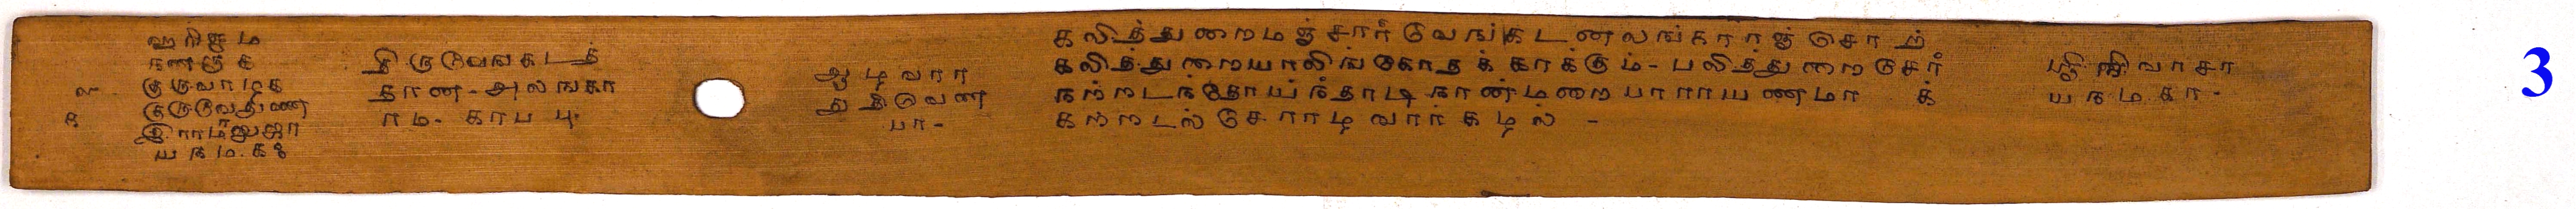 ஹரிஓம
நனகுக
குருவாழக
குருவெதுணை
இராமானுஜா
யநம.க
திருவெஙகடத
தான-அலஙகா
ரம-காபபு
ஆழவார
துதிவெண
பா-
கலித்துறைமஞ்சார்வெங்கடனலங்காரஞ்சொற்
கலித்துறையாலிங்கோதக்காக்கும்-பலித்துறைசேர்
நற்றடந்தோய்ந்தாடிநாண்மறைபாராயணமா க்
கற்றடல்சேராழவார்கழல் -
ஸ்ரீநிவாசா
யநமகா-
3